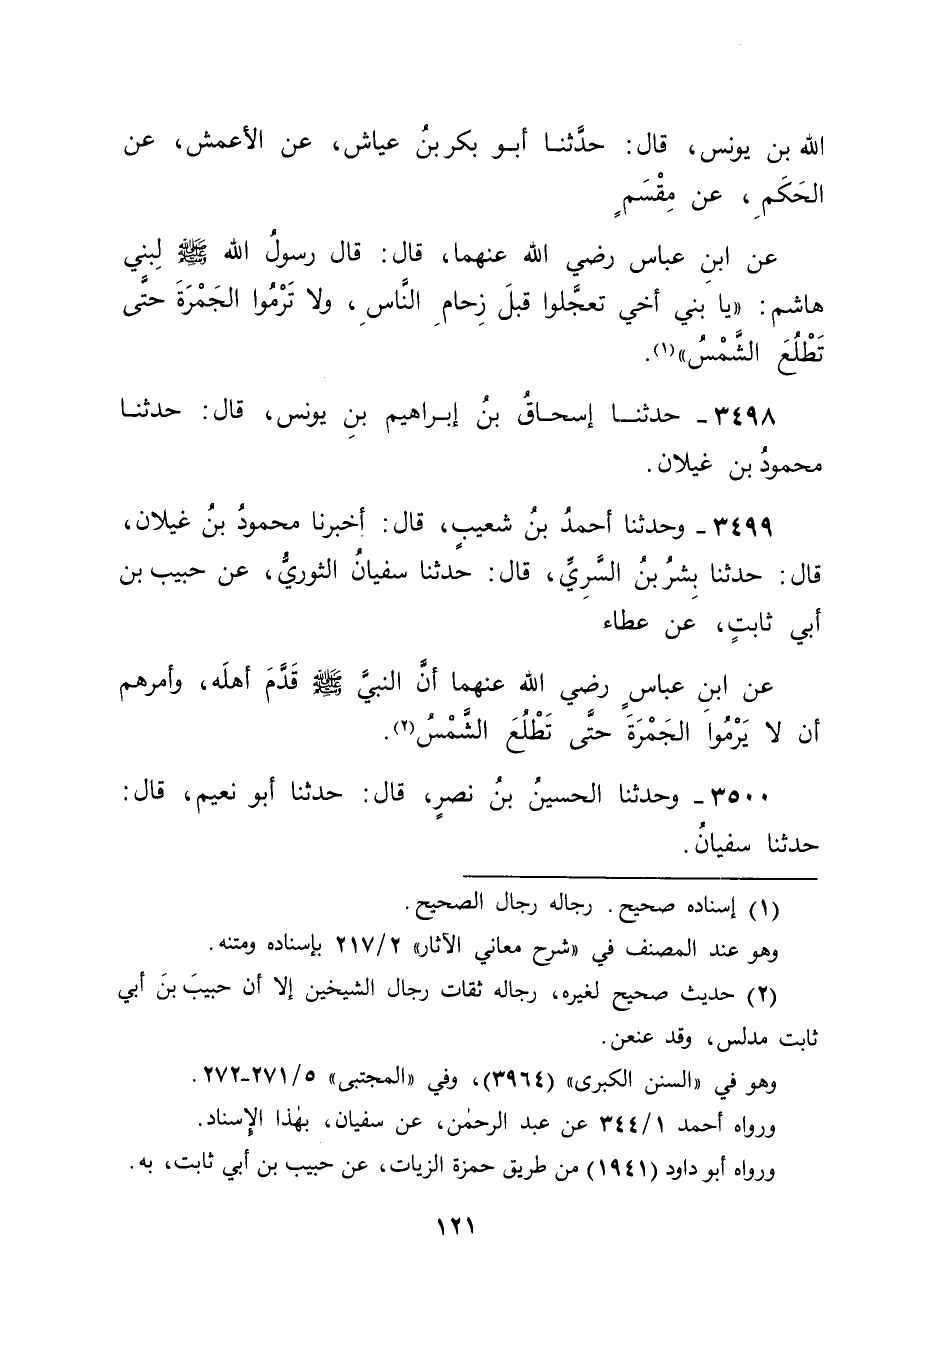 الله بن يونس، قال: حدَّثنا أبو بكر بنُ عياش، عن الأعمش، عن
الحَكَمِ، عن مِقْسَمٍ
عن ابنِ عباس رضي الله عنهما، قال: قال رسولُ الله ﷺ لِبني
هاشم: «يا بني أخي تعجَّلوا قبلَ زِحامِ النَّاسِ، ولا تَرْمُوا الجَمْرَةَ حتَّى
تَطْلُعَ الشَّمْسُ»(١).
٣٤٩٨ - حدثنا إسحاقُ بنُ إبراهيم بنِ يونس، قال: حدثنا
محمودُ بن غيلان.
٣٤٩٩ - وحدثنا أحمدُ بنُ شعيبٍ، قال: أخبرنا محمودُ بنُ غيلان،
قال: حدثنا بِشرُ بنُ السَّرِيِّ، قال: حدثنا سفيانُ الثوريُّ، عن حبيب بن
أبي ثابتٍ، عن عطاء
عن ابنِ عباسٍ رضي الله عنهما أنَّ النبيَّ ﷺ قَدَّمَ أهلَه، وأمرهم
أن لا يَرْمُوا الجَمْرَةَ حتَّى تَطْلُعَ الشَّمْسُ(٢).
٣٥٠٠ - وحدثنا الحسينُ بنُ نصرٍ، قال: حدثنا أبو نعيم، قال:
حدثنا سفيانُ.
(١) إسناده صحيح. رجاله رجال الصحيح.
وهو عند المصنف في «شرح معاني الآثار» ٢١٧/٢ بإسناده ومتنه.
(٢) حديث صحيح لغيره، رجاله ثقات رجال الشيخين إلا أن حبيبَ بنَ أبي
ثابت مدلس، وقد عنعن.
وهو في «السنن الكبرى» (٣٩٦٤)، وفي «المجتبى» ٢٧١/٥-٢٧٢.
ورواه أحمد ٣٤٤/١ عن عبد الرحمٰن، عن سفيان، بهٰذا الإسناد.
ورواه أبو داود (١٩٤١) من طريق حمزة الزيات، عن حبيب بن أبي ثابت، به.
١٢١